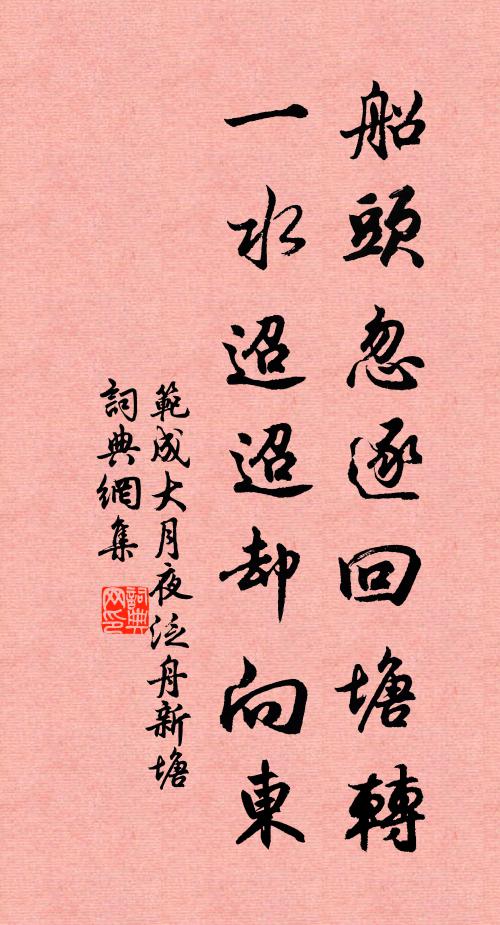 船頭忽逐回塘轉
一水迢迢却向東
範成大月夜泛舟新塘
詞典網集
詞典网印